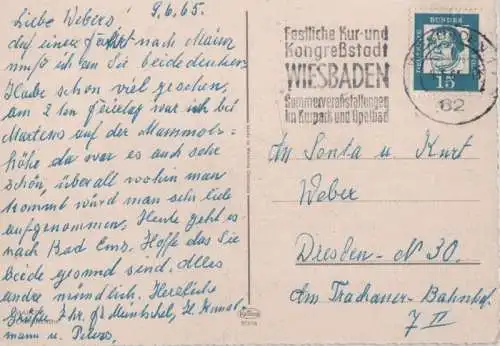 Liebe Webers! 9.6.65.
auf einer Fahrt nach Mainz
muß ich an Sie beide denken.
Habe schon viel gesehen,
am 2ten Feiertag war ich bei
Martens auf der Mammols-
höhe da war es auch sehr
schön, überall wohin man
kommt wird man sehr lieb
aufgenommen, Heute geht es
nach Bad Ems. Hoffe das Sie
beide gesund sind. Alles
andre mündlich. Herzliche
Grüße Ihr
mann u. Peters.
Festliche Kur- und
Kongreßstadt
WIESBADEN
Sommerveranstaltungen
im Kurpark und Opelbad
62
DEUTSCHE BUNDESPOST
15
An Sonta u. Kurt
Weber
Dresden - N 30.
Am Trachauer-Bahnhof
7 II